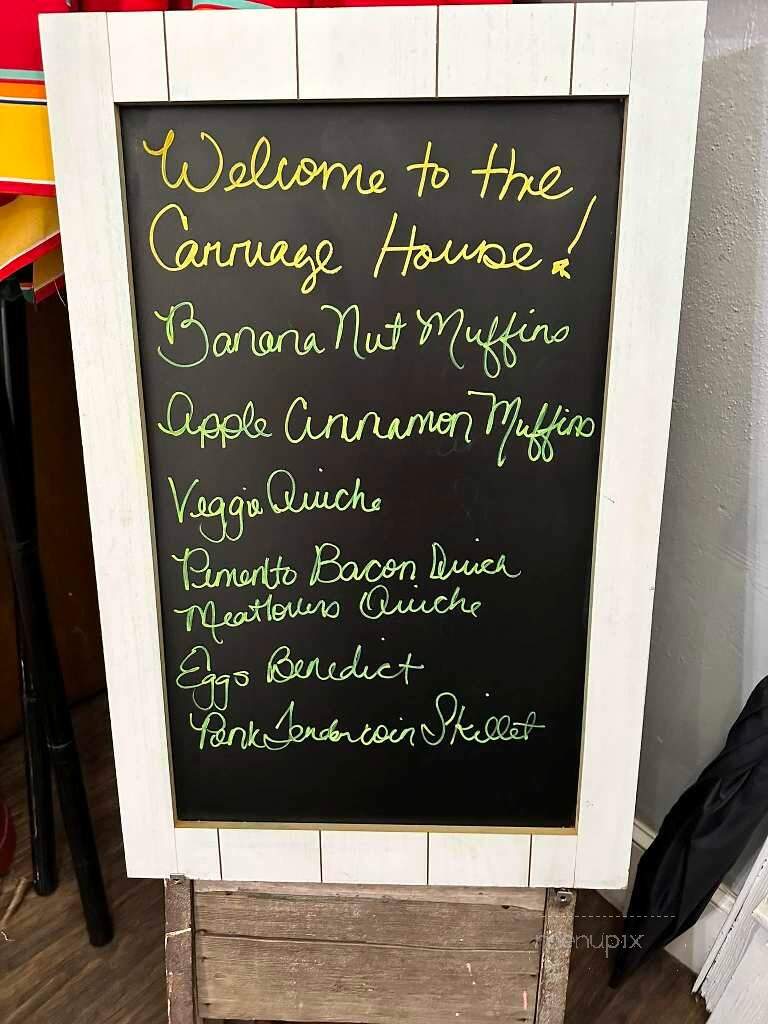 Welcome to the
Carriage House!
Banana Nut Muffins
Apple Cinnamon Muffins
Veggie Quiche
Pimento Bacon Quich
Meatlovers Quiche
Eggs Benedict
Pork Tenderloin Skillet
menupix